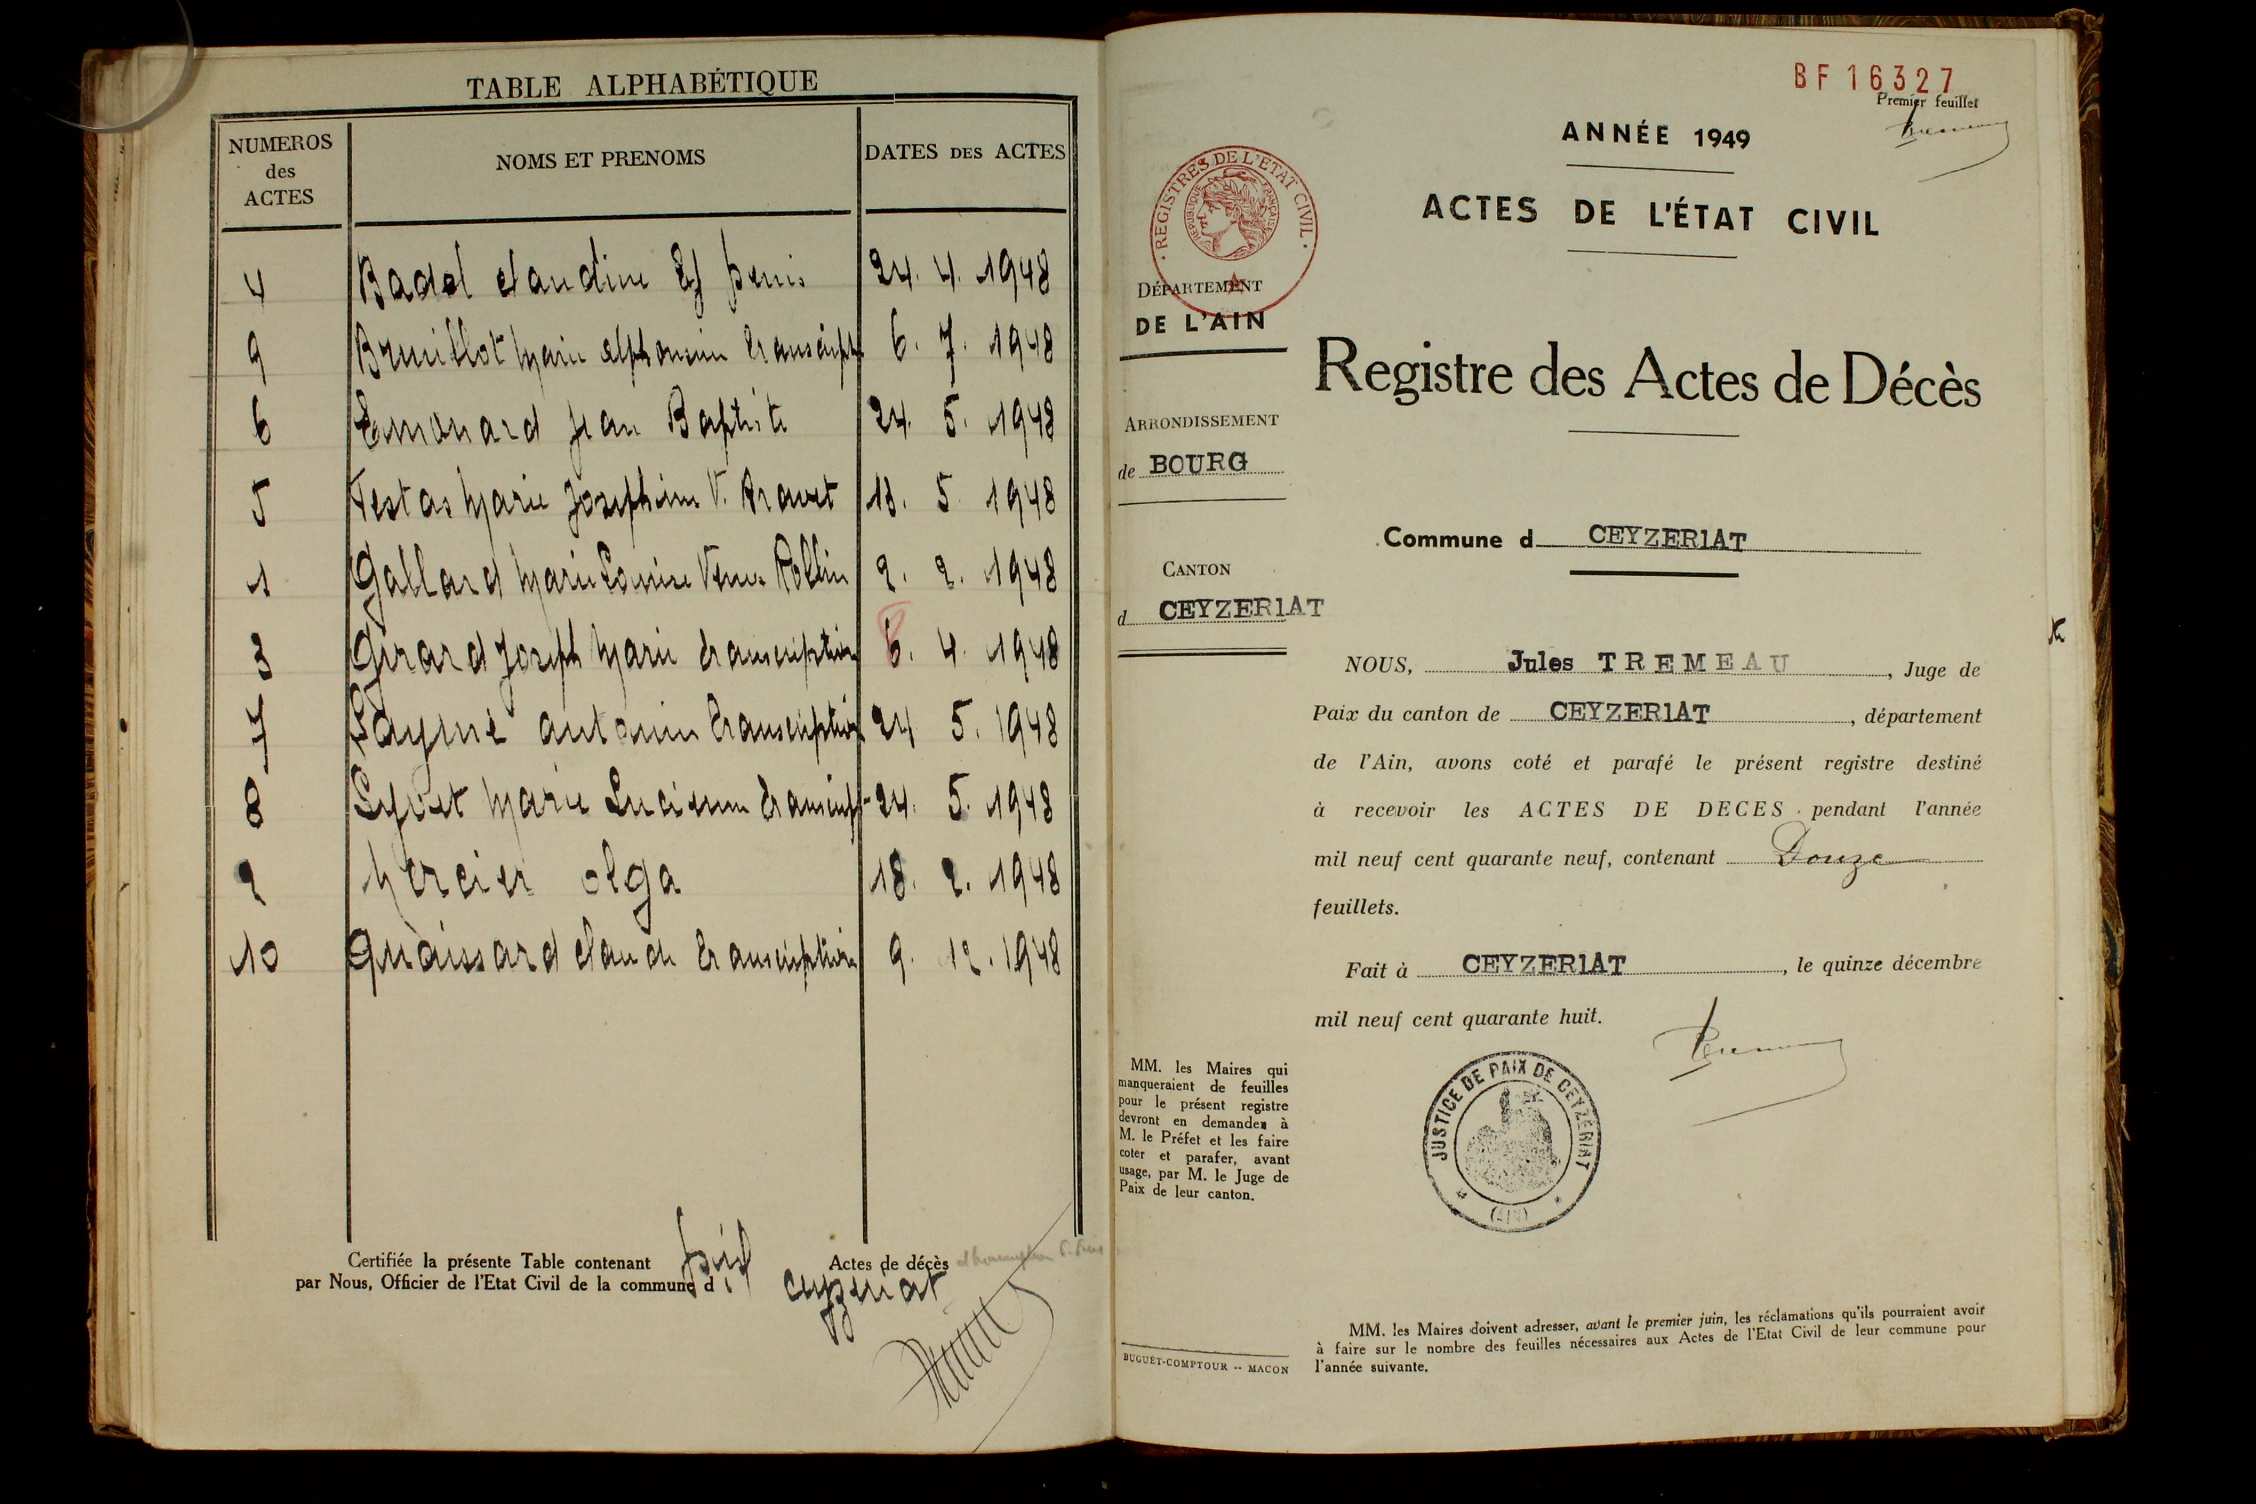 TABLE ALPHABÉTIQUE
NUMEROS des ACTES
NOMS ET PRENOMS
DATES DES ACTES
4 Badel Claudine Ep 24. 4. 1948
9 Marie Alphonsine transcript 6. 7. 1948
6 Emonard Jean Baptiste 24. 5. 1948
5 Festas Marie Josephine V. 13. 5 1948
1 Gallard Marie Louise Veuve Rollin 2. 2. 1948
3 Girard Joseph Marie transcription 6. 4. 1948
7 antonin transcription 24 5. 1948
8 Marie Lucienne transcript 24. 5. 1948
2 Mercier Olga 18. 2. 1948
10 Claude transcription 9. 12. 1948
Certifiée la présente Table contenant Actes de décès
par Nous, Officier de l'Etat Civil de la commune d Ceyzeriat
BF 16327
Premier feuillet
ANNÉE 1949
ACTES DE L'ÉTAT CIVIL
· REGISTRES DE L'ETAT CIVIL ·
REPUBLIQUE FRANÇAISE
DÉPARTEMENT
DE L'AIN
ARRONDISSEMENT
de BOURG
CANTON
d CEYZER1AT
Registre des Actes de Décès
Commune d CEYZER1AT
NOUS, Jules TREMEAU, Juge de
Paix du canton de CEYZER1AT, département
de l'Ain, avons coté et parafé le présent registre destiné
à recevoir les ACTES DE DECES pendant l'année
mil neuf cent quarante neuf, contenant Douze
feuillets.
Fait à CEYZER1AT, le quinze décembre
mil neuf cent quarante huit.
JUSTICE DE PAIX DE CEYZÉRIAT
(AIN)
MM. les Maires qui
manqueraient de feuilles
pour le présent registre
devront en demander à
M. le Préfet et les faire
coter et parafer, avant
usage, par M. le Juge de
Paix de leur canton.
BUGUET-COMPTOUR -- MACON
MM. les Maires doivent adresser, avant le premier juin, les réclamations qu'ils pourraient avoir
à faire sur le nombre des feuilles nécessaires aux Actes de l'Etat Civil de leur commune pour
l'année suivante.